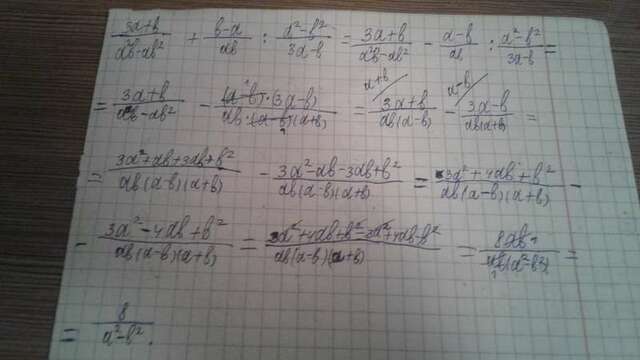 (3a+b)/(a²b-ab²) + (b-a)/(ab) : (a²-b²)/(3a-b) = (3a+b)/(a²b-ab²) - (a-b)/(ab) : (a²-b²)/(3a-b) =
= (3a+b)/(a²b-ab²) - ((a-b)·(3a-b))/(ab·(a-b)(a+b)) = a+b/ (3a+b)/(ab(a-b)) - a-b/ (3a-b)/(ab(a+b)) =
= (3a²+ab+3ab+b²)/(ab(a-b)(a+b)) - (3a²-ab-3ab+b²)/(ab(a-b)(a+b)) = (3a²+4ab+b²)/(ab(a-b)(a+b)) -
- (3a²-4ab+b²)/(ab(a-b)(a+b)) = (3a²+4ab+b²-3a²+4ab-b²)/(ab(a-b)(a+b)) = (8ab)/(ab(a²-b²)) =
= 8/(a²-b²).